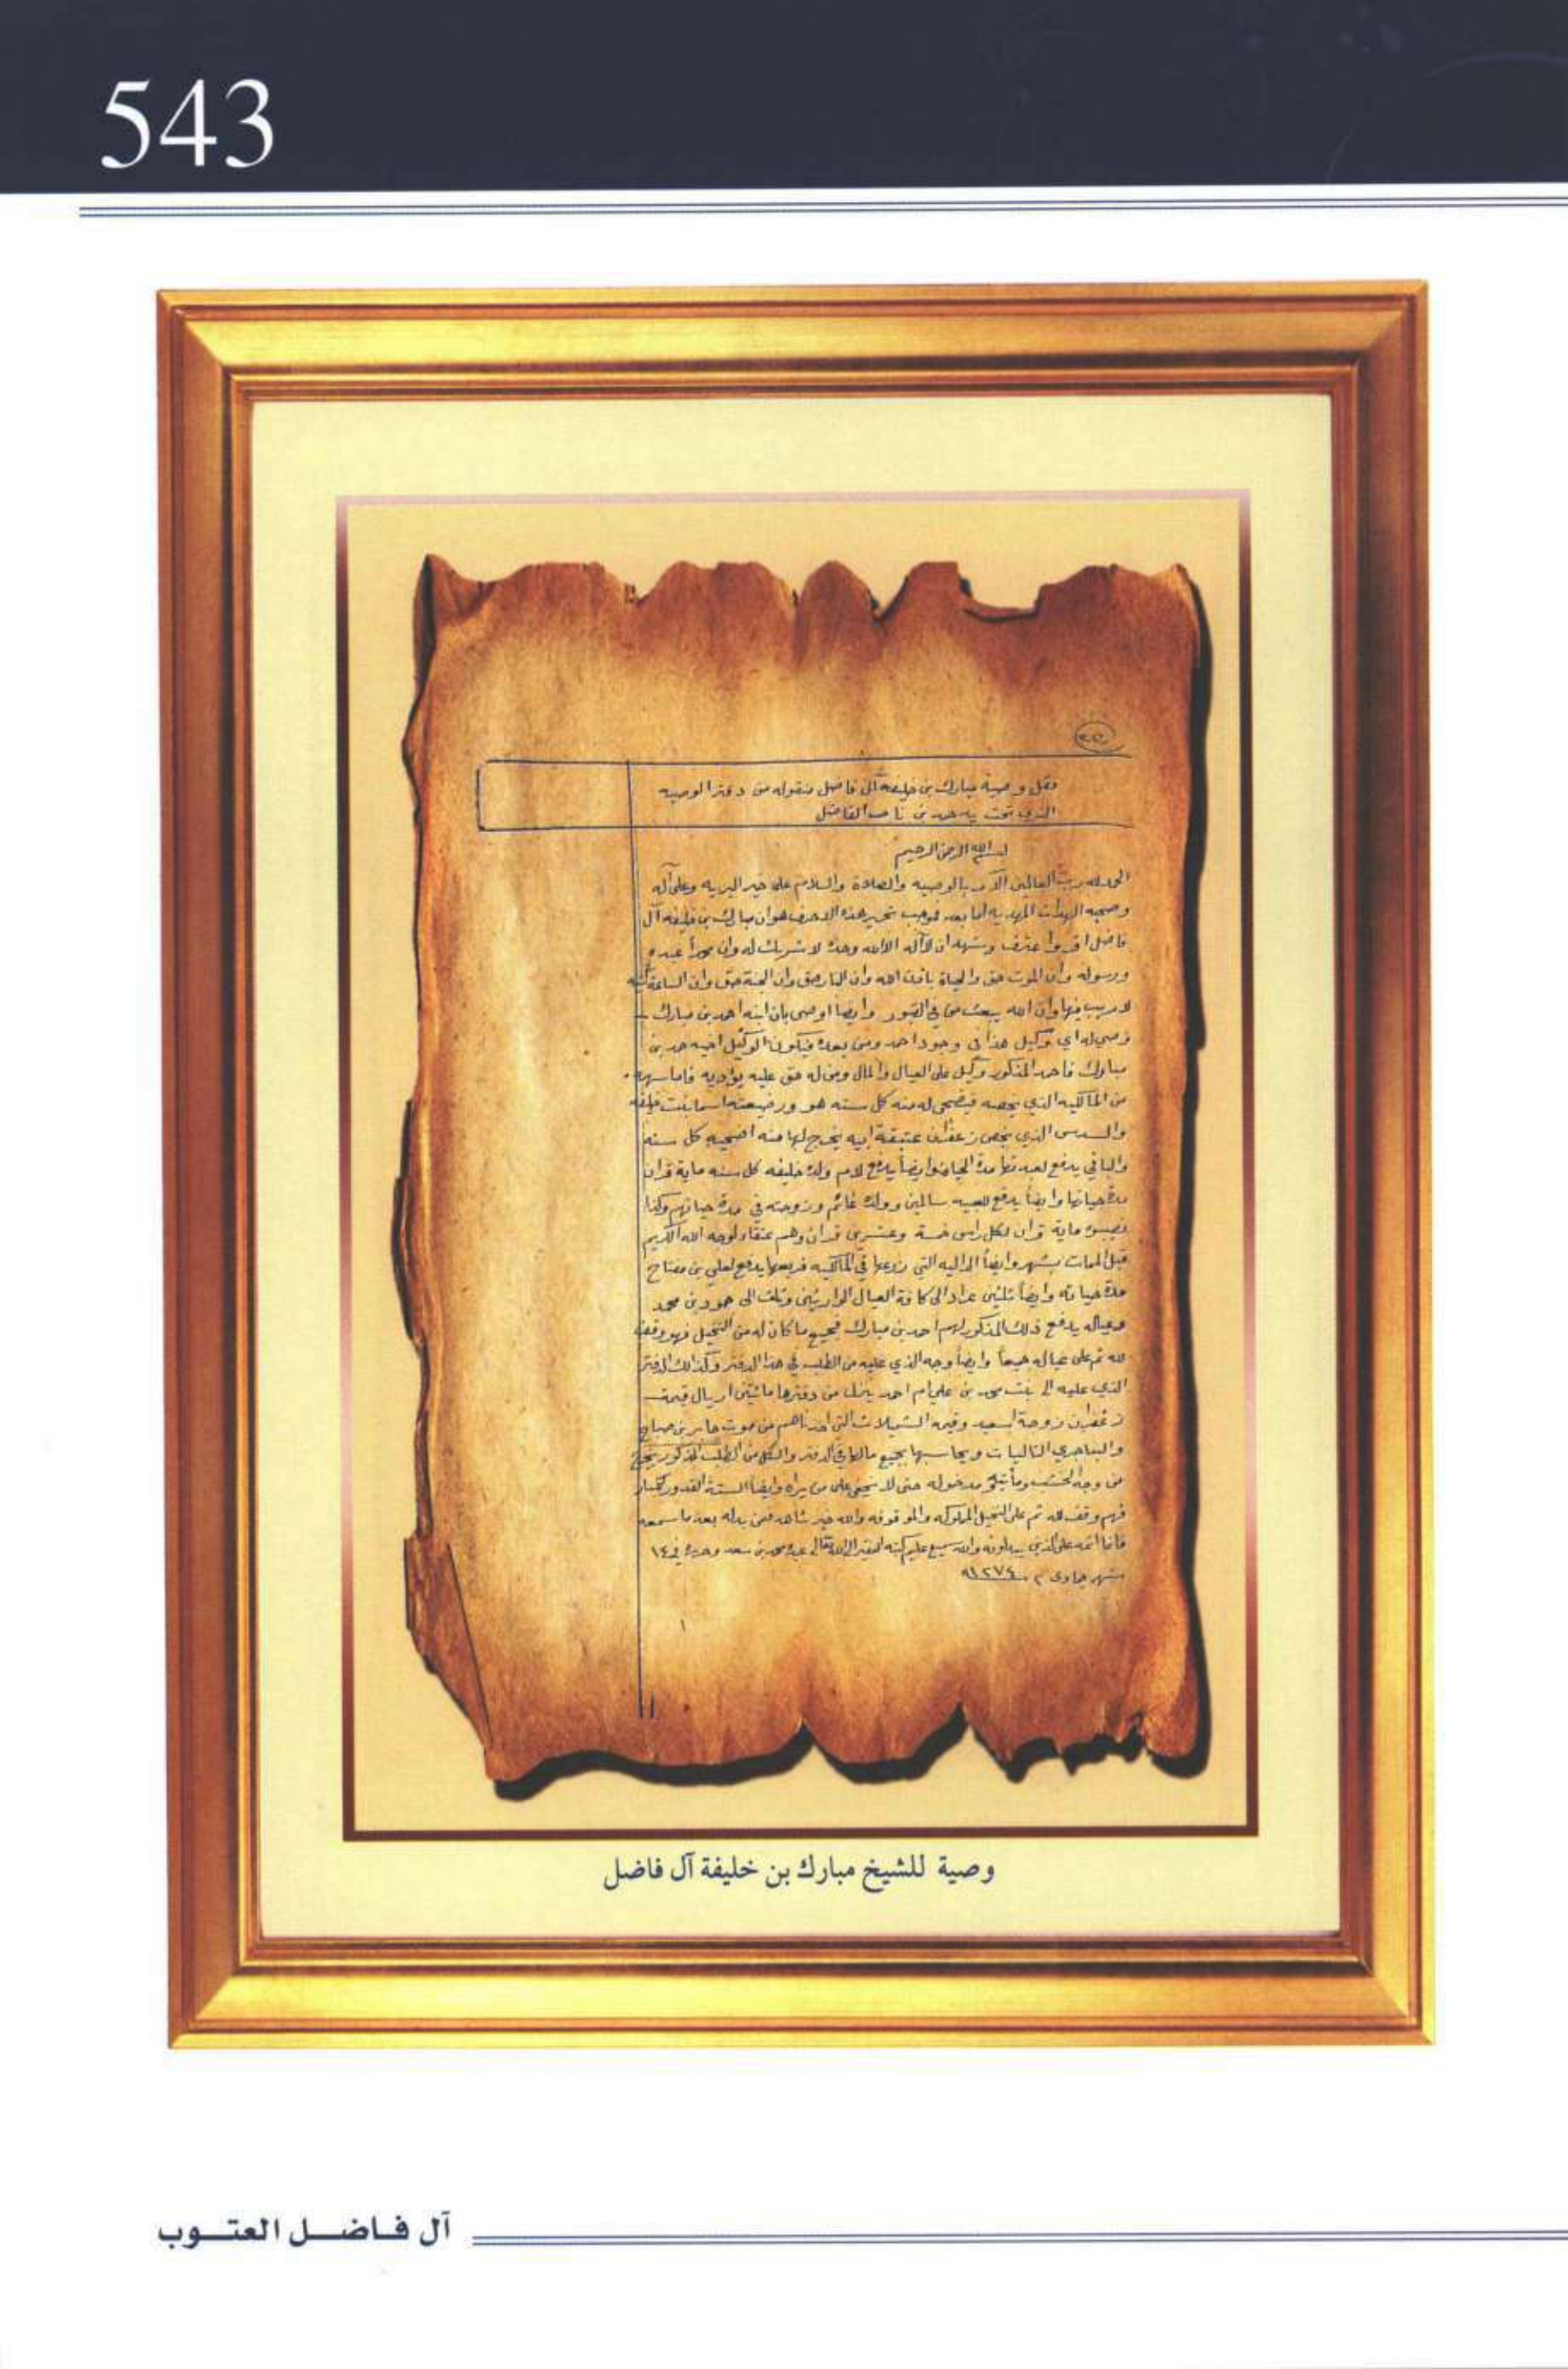 543
نقل وصية مبارك بن خليفه آل فاضل منقوله من دفتر الوصيه
الذي تحت يد حمد بن ناصر الفاضل
بسم الله الرحمن الرحيم
الحمد لله رب العالمين الآمر بالوصيه والصلاة والسلام على خير البريه وعلى آله
وصحبه الهدات المهديه اما بعد فموجب تحرير هذه الاحرف هو ان مبارك بن خليفه آل
فاضل اقر واعترف وشهد ان لا آله الا الله وحده لا شريك له وان محمداً عبده
ورسوله وان الموت حق والحياة باذن الله وان النار حق وان الجنة حق وان الساعة آتيه
لا ريب فيها وان الله يبعث من في القبور وايضاً اوصى بان ابنه احمد بن مبارك
وصي له اي وكيل هذا في وجود احمد ومن بعده فيكون الوكيل اخيه حمد بن
مبارك فاحمد المذكور وكيل على العيال والمال ومن له حق عليه يؤديه فاما سهمه
من المالكيه الذي يخصه فيضحى له منه كل سنه هو ورضيعته اسما بنت خليفه
والسدس الذي يخص زعفران عتيقة ابيه يخرج لها منه اضحيه كل سنه
والباقي يدفع مدة وايضاً يدفع لام ولده خليفه كل سنه ماية قران
مدة حياتها وايضاً يدفع للعبيد سالمين وولده غانم وزوجته في مدة حياتهم وكذا
ماية قران لكل راس خمسة وعشرين قران وهم عتقاء لوجه الله الكريم
قبل الممات بشهر وايضاً الداليه التي زرعها في المالكيه فريعها يدفع لعلي بن مفتاح
مدة حياته وايضاً ثلثين الى كافة العيال الوارثين وثلث الى حمود بن محمد
وعياله يدفع ذلك المذكور لهم احمد بن مبارك فجميع ما كان له من النخيل فهو وقف
لله ثم على عياله جميعاً وايضاً وجه الذي عليه من الطلب في هذا الدفتر وكذالك الدفتر
الذي عليه الى بنت محمد بن علي ام احمد ينزل من دفترها مائتين اريال قيمة
زعفران زوجة اسعيد وقيمة التي اخذناهم من جابر بن صباح
ويحاسبها بجميع مالها في الدفتر والكل من الطلب المذكور يخرج
من وجه الخشب مدخوله حتى لا يخفى على من يراه وايضاً الستة القدور كبار
فهم وقف لله ثم على النخيل المملوكه والموقوفه والله خير شاهد فمن بدله بعد ما سمعه
فانما اثمه على الذين يبدلونه والله سميع عليم كتبه الفقير الى الله تعالى عبده محمد بن سعد وحرر في ١٤
شهر جمادى ٢ سنة ١٢٧٤هـ
وصية للشيخ مبارك بن خليفة آل فاضل
آل فاضل العتوب